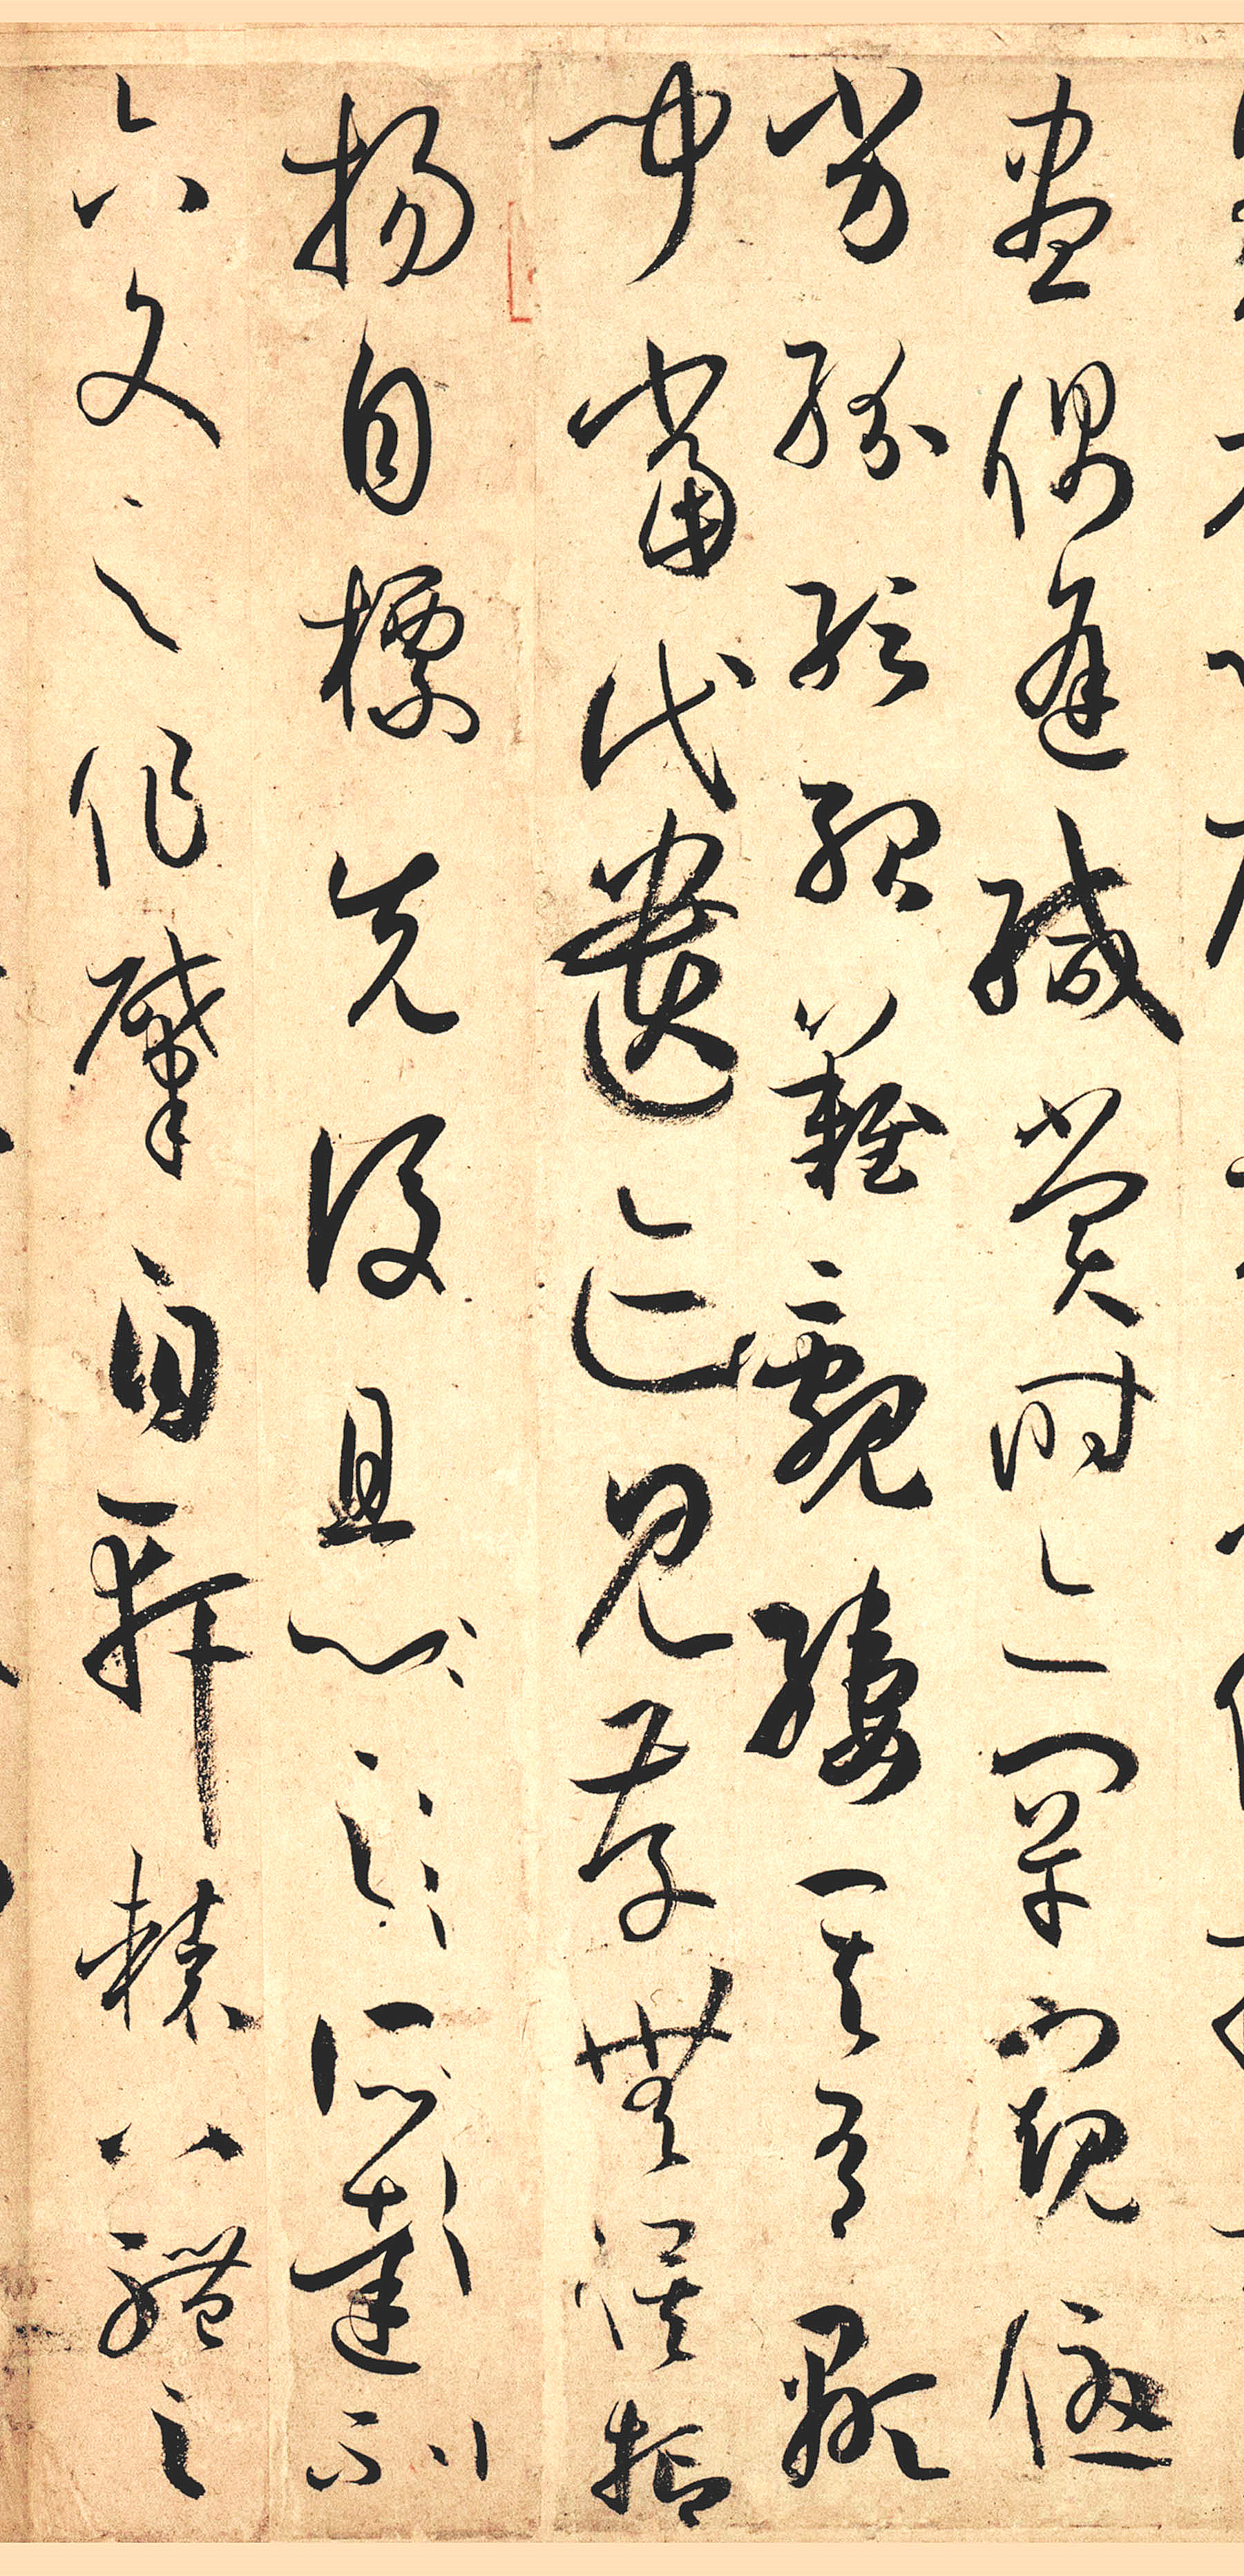 盡偶逢緘賞時亦罕窺優
劣紛紜殆難覼縷其有顯
聞當代遺迹見存無俟抑
揚自標先後且心之所達不
六文之作肇自軒轅八體之